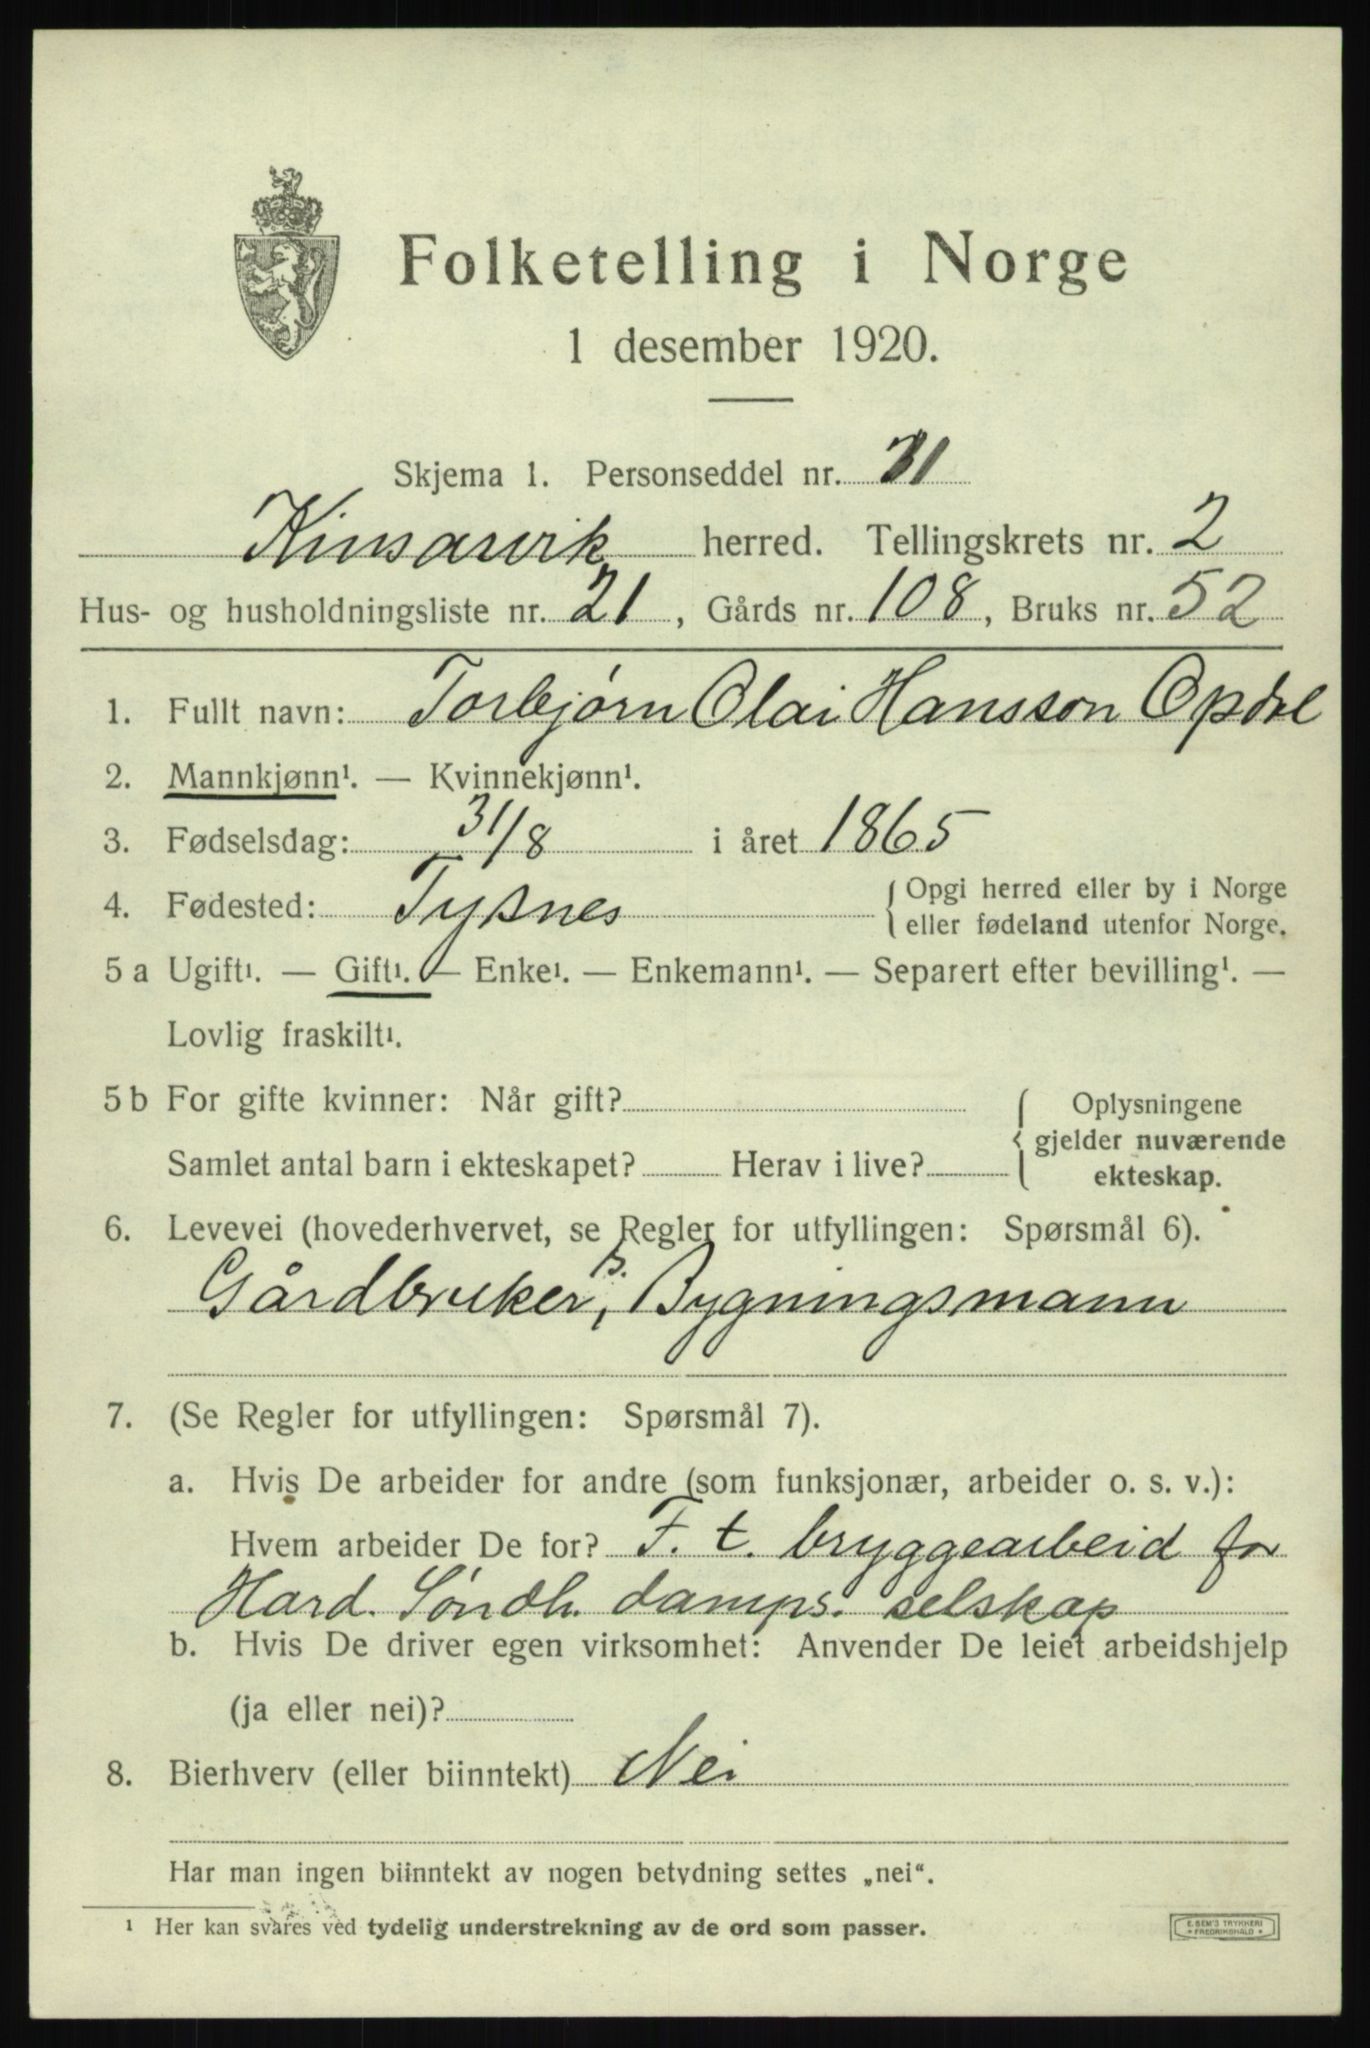 Folketelling i Norge
1 desember 1920.
Skjema 1. Personseddel nr. 31
Kinsarvik herred. Tellingskrets nr. 2
Hus- og husholdningsliste nr. 21, Gårds nr. 108, Bruks nr. 52
1. Fullt navn: Torbjørn Olai Hansson Opdal
2. Mannkjønn¹. — Kvinnekjønn¹.
3. Fødselsdag: 31/8 i året 1865
4. Fødested: Tysnes { Opgi herred eller by i Norge
eller fødeland utenfor Norge.
5 a Ugift¹. — Gift¹. — Enke¹. — Enkemann¹. — Separert efter bevilling¹. —
Lovlig fraskilt¹.
5 b For gifte kvinner: Når gift? { Oplysningene
gjelder nuværende
Samlet antal barn i ekteskapet? Herav i live?
ekteskap.
6. Levevei (hovederhvervet, se Regler for utfyllingen: Spørsmål 6).
Gårdbruker, s. Bygningsmann
7. (Se Regler for utfyllingen: Spørsmål 7).
a. Hvis De arbeider for andre (som funksjonær, arbeider o. s. v.):
Hvem arbeider De for? F. t. bryggearbeid for
Hard. Søndh. damps. selskap
b. Hvis De driver egen virksomhet: Anvender De leiet arbeidshjelp
(ja eller nei)?
8. Bierhverv (eller biinntekt) Nei
Har man ingen biinntekt av nogen betydning settes „nei“.
¹ Her kan svares ved tydelig understrekning av de ord som passer.
E. SEM'S TRYKKERI
FREDRIKSHALD